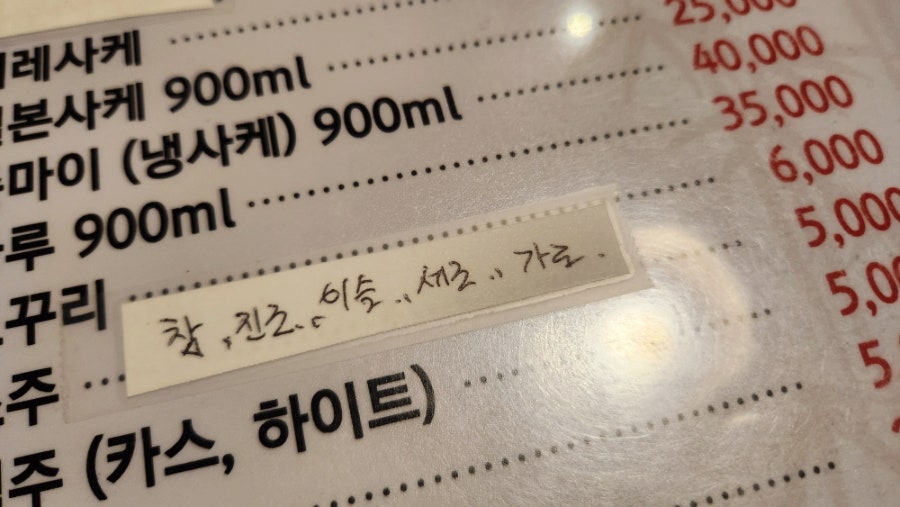 레사케
본사케 900ml 25,000
마이 (냉사케) 900ml 40,000
루 900ml 35,000
꾸리 6,000
참, 진로, 이슬, 세로, 가로.
주 5,000
주 (카스, 하이트)